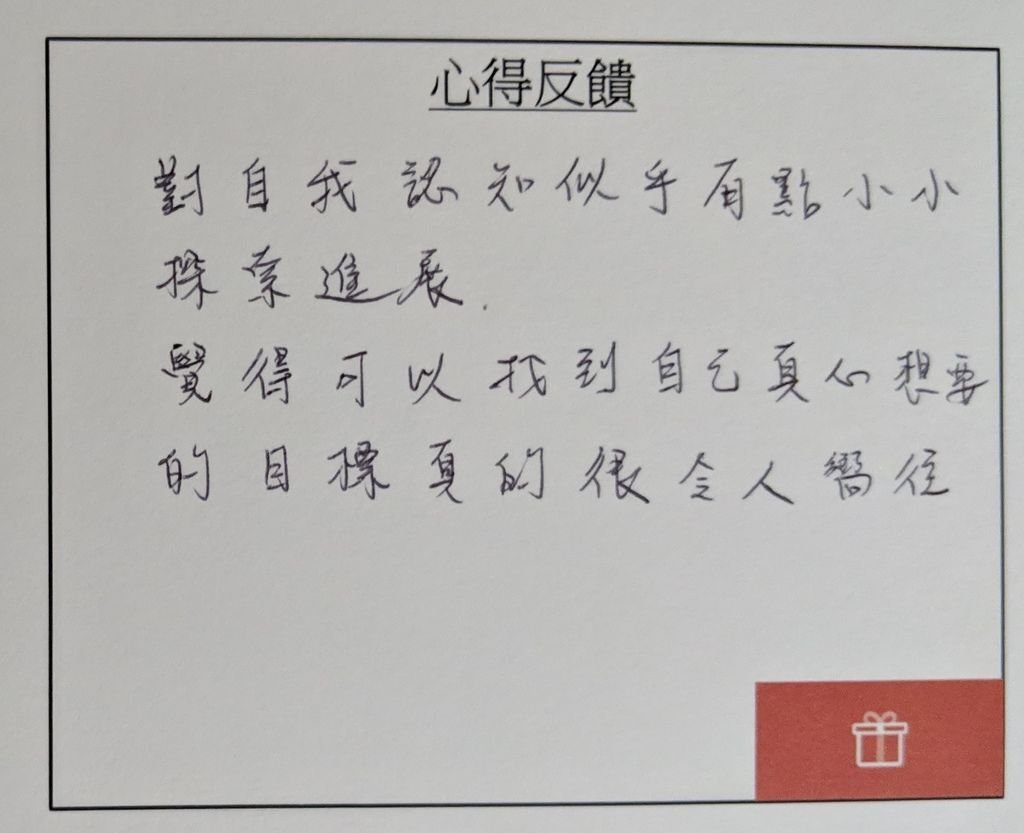 心得反饋
對自我認知似乎有點小小
探索進展.
覺得可以找到自己真心想要
的目標真的很令人嚮往